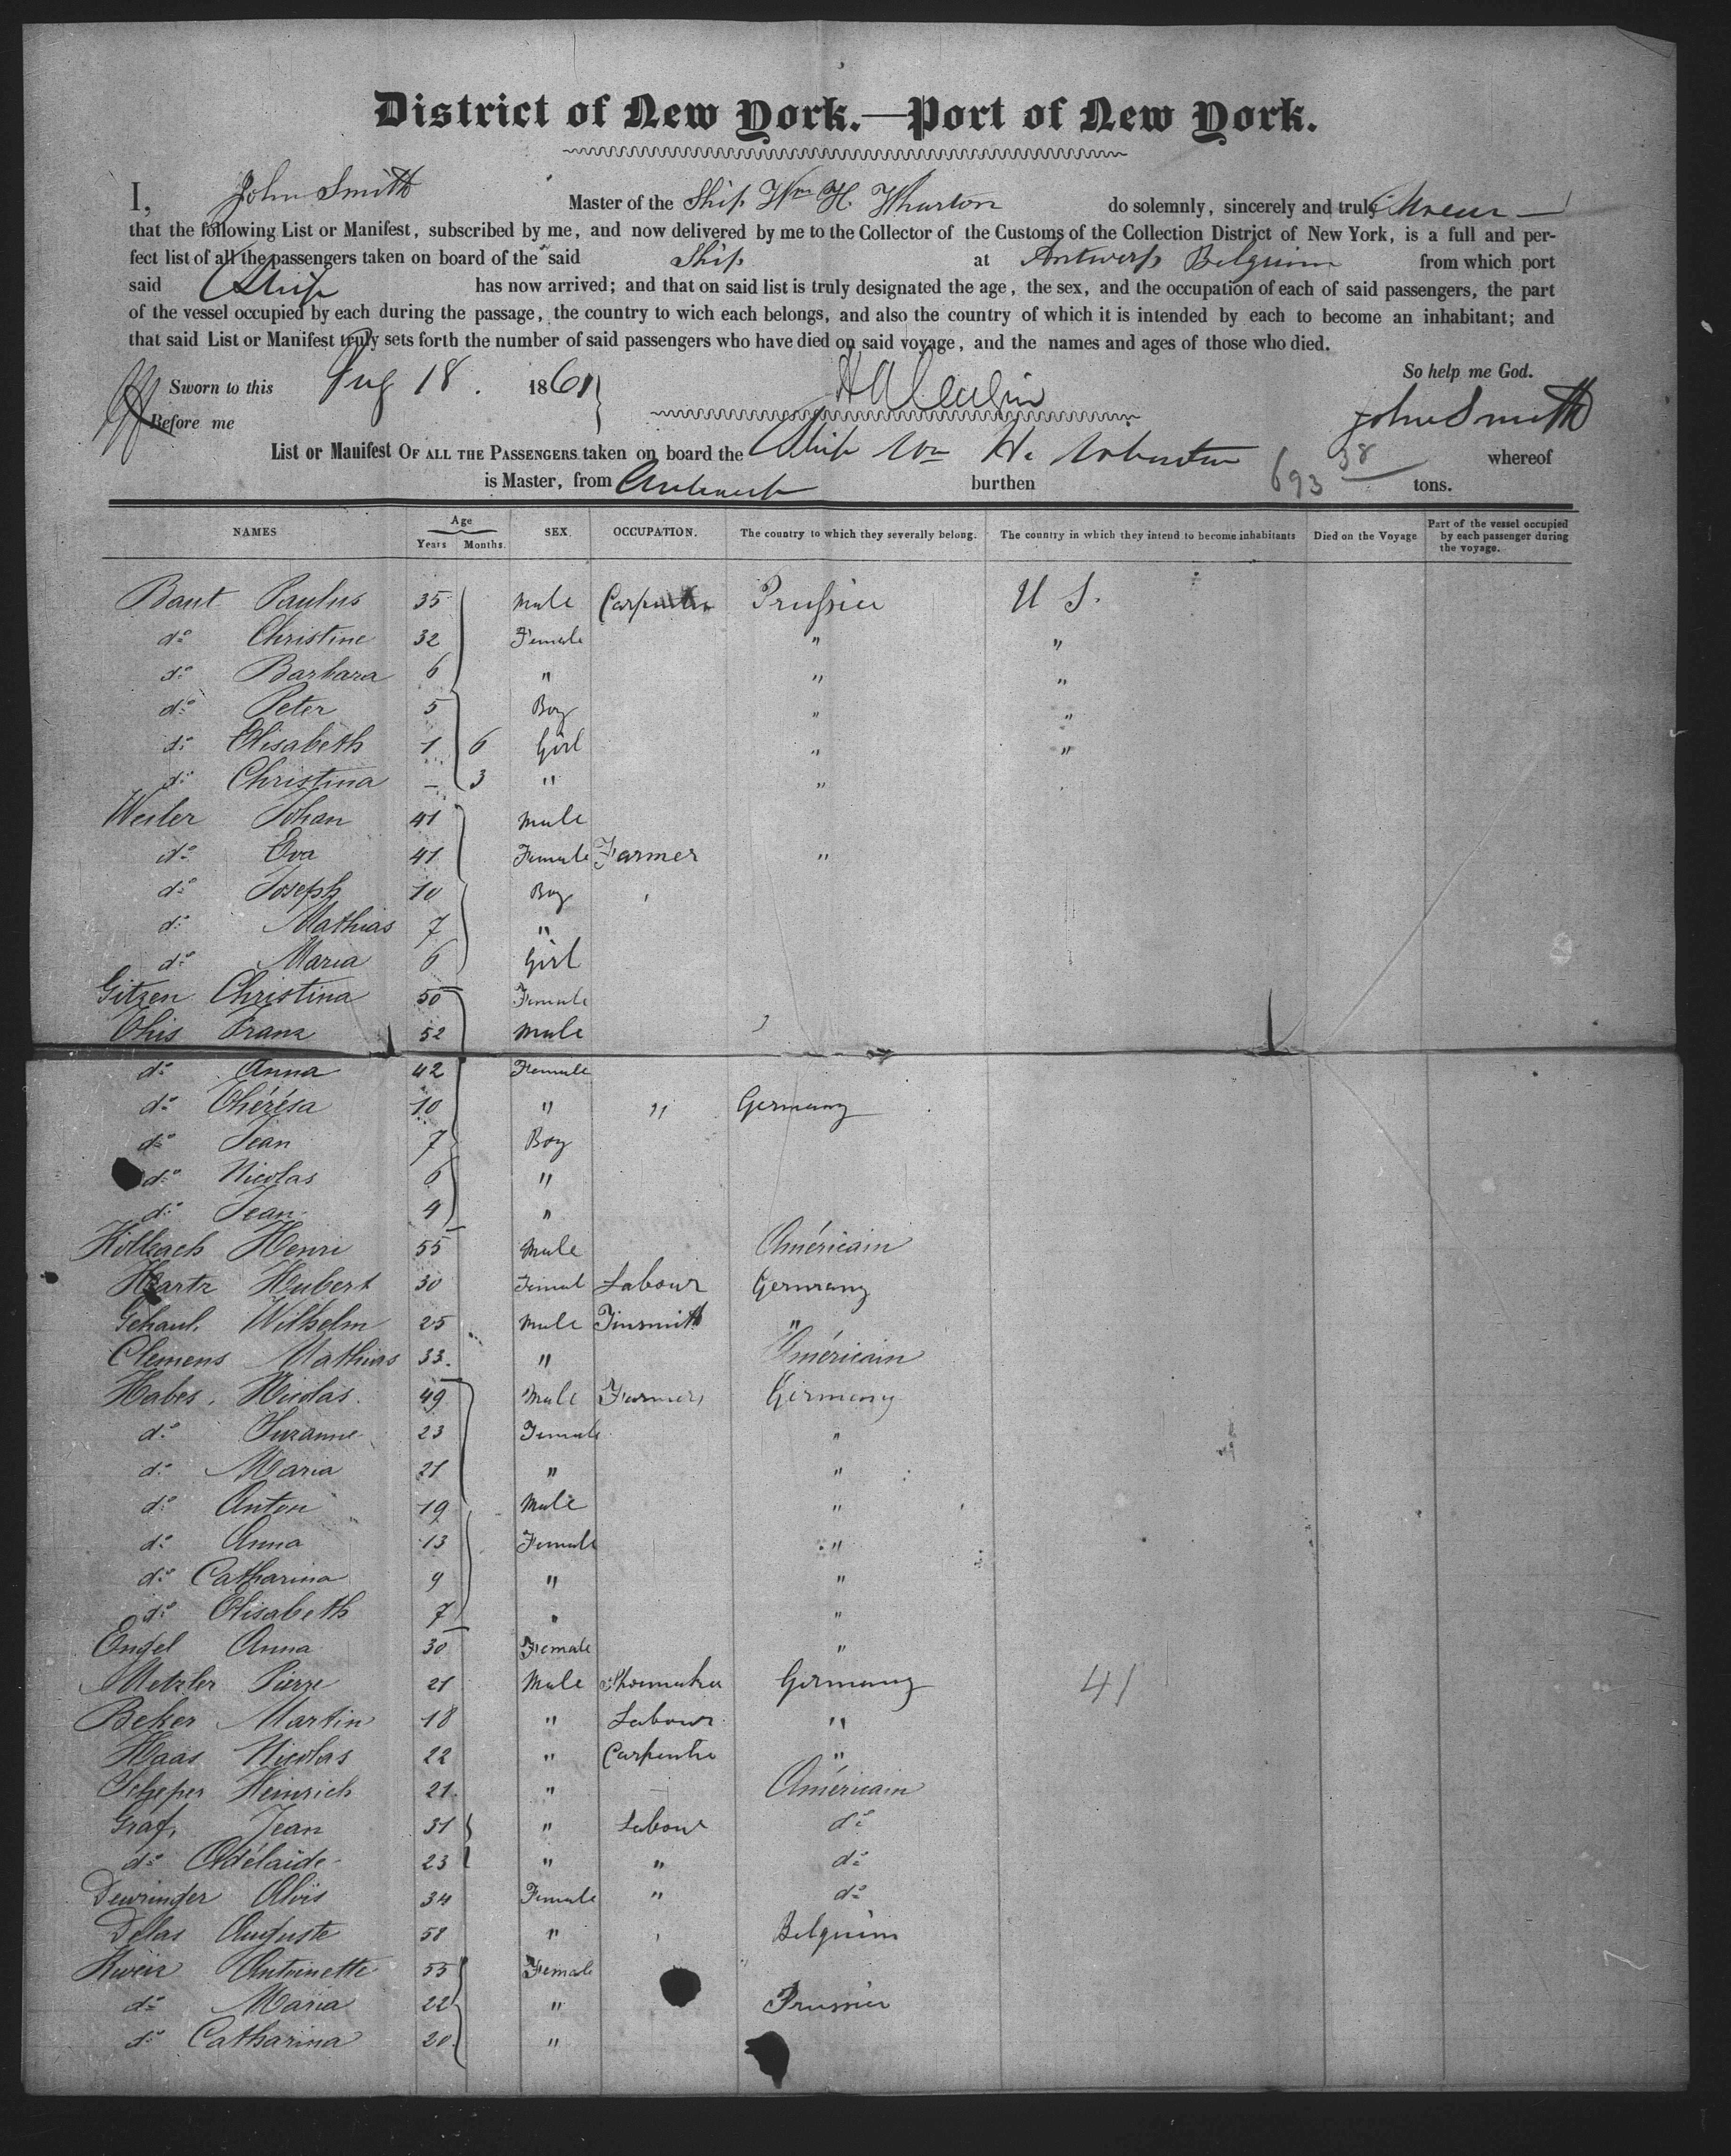 District of New York.—Port of New York.
I, John Smith Master of the Ship Wm H. Wharton do solemnly, sincerely and truly Swear
that the following List or Manifest, subscribed by me, and now delivered by me to the Collector of the Customs of the Collection District of New York, is a full and per-
fect list of all the passengers taken on board of the said Ship at Antwerp Belgium from which port
said Ship has now arrived; and that on said list is truly designated the age, the sex, and the occupation of each of said passengers, the part
of the vessel occupied by each during the passage, the country to wich each belongs, and also the country of which it is intended by each to become an inhabitant; and
that said List or Manifest truly sets forth the number of said passengers who have died on said voyage, and the names and ages of those who died.
So help me God.
Sworn to this Aug 18. 1861
Before me John Smith
List or Manifest OF ALL THE PASSENGERS taken on board the Ship Wm H. Wharton whereof
is Master, from Antwerp burthen 693 38 tons.
NAMES Age Years Months. SEX. OCCUPATION. The country to which they severally belong. The country in which they intend to become inhabitants Died on the Voyage Part of the vessel occupied by each passenger during the voyage.
Baut Paulus 35 Male Carpenter Prussia U S.
do Christine 32 Female " "
do Barbara 6 " " "
do Peter 5 Boy " "
do Elisabeth 1 6 Girl " "
do Christina — 3 " "
Weiler Johan 41 Male
do Eva 41 Female Farmer "
do Joseph 10 Boy
do Mathias 7 "
do Maria 6 Girl
Gitzen Christina 50 Female
Franz 52 Male
do Anna 42 Female
do Thérésa 10 " " Germany
do Jean 7 Boy
do Nicolas 6 "
do Jean 4 "
Henri 55 Male Américain
Hartz Hubert 30 Femal Labour Germany
Wilhelm 25 Male Tinsmith "
Clemens Mathias 33. " Américain
Habes, Nicolas. 49 Male Farmer Germany
do Suzanne 23 Female "
do Maria 21 " "
do Anton 19 Male "
do Anna 13 Female "
do Catharina 9 " "
do Elisabeth 7 " "
Engel Anna 30 Female "
Metzler Pierre 21 Male Shoemaker Germany 41
Beker Martin 18 " Labour "
Haas Nicolas 22 " Carpenter "
Scheper Heinrich 21. " — Américain
Graf, Jean 31 " Labour do
do Adélaide 23 " " do
Dewringer Aloïs 34 Female " do
Delas Auguste 58 " Belguim
Antoinette 55 Female
do Maria 22 " Prussia
do Catharina 20 "